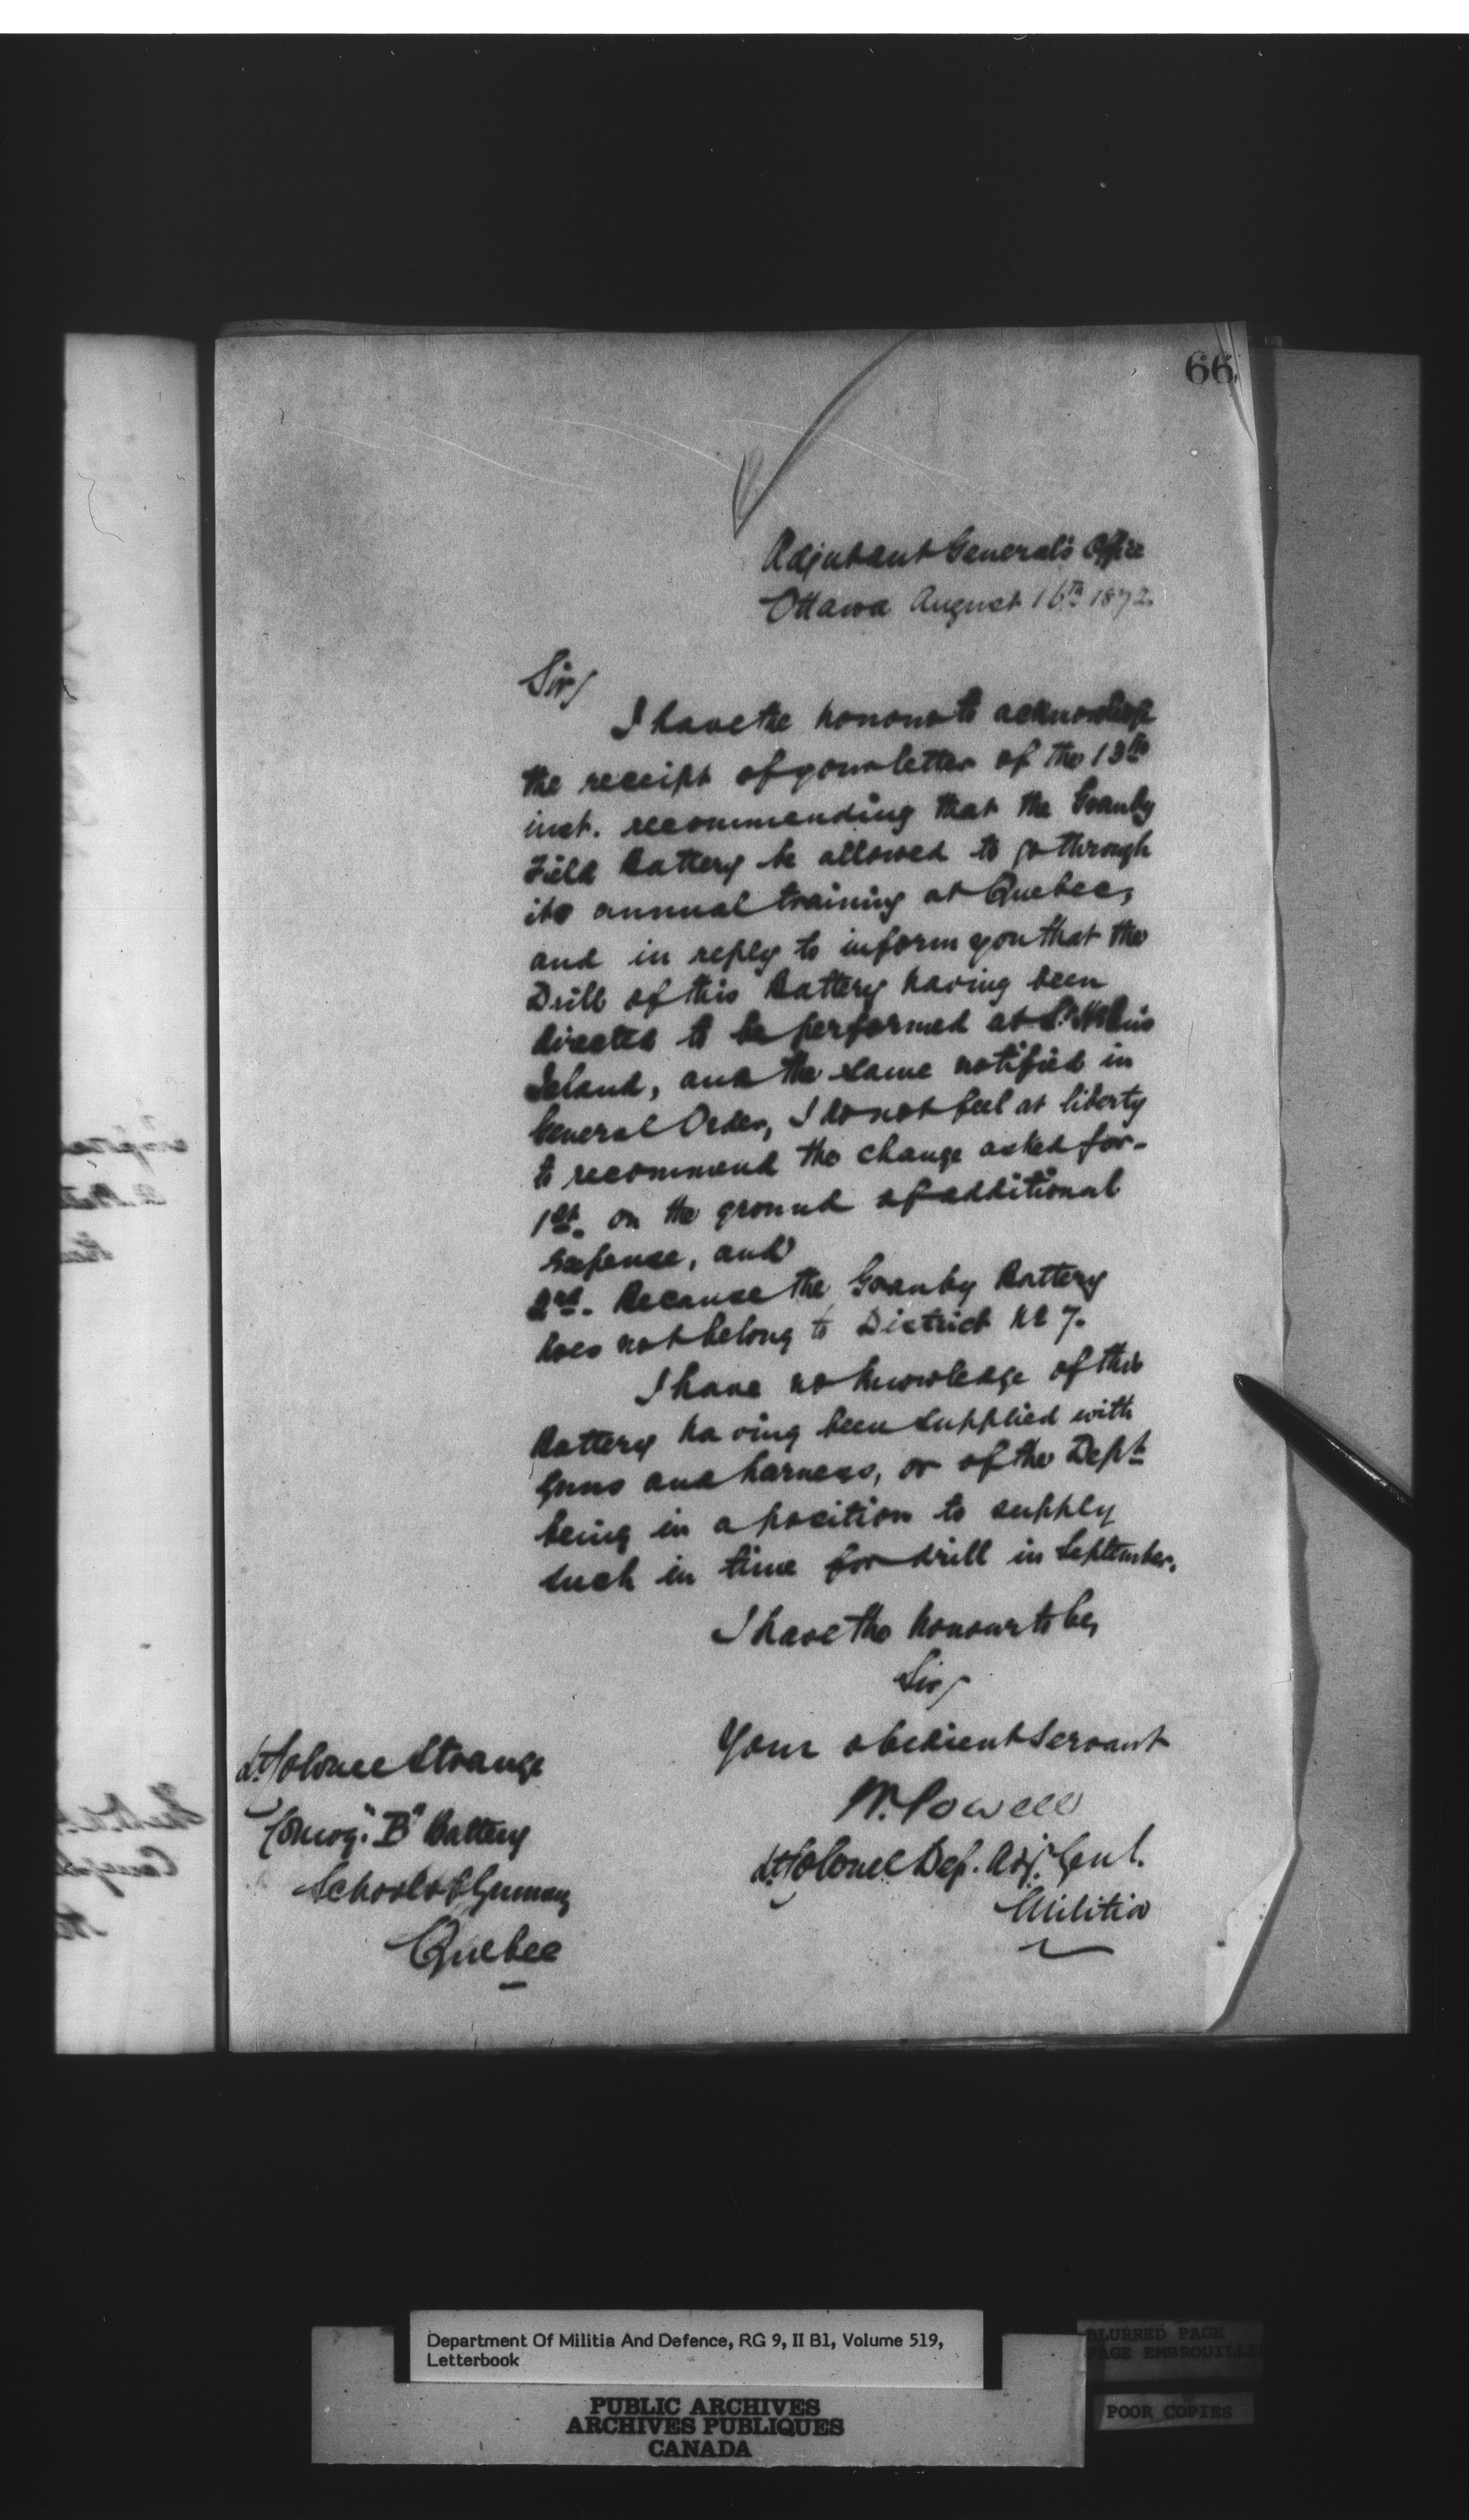 66
Adjutant General's Office
Ottawa August 16th 1872.
Sir/
I have the honour to acknowledge
the receipt of your letter of the 13th
inst. recommending that the Granby
Field Battery be allowed to go through
its annual training at Quebec,
and in reply to inform you that the
Drill of this Battery having been
directed to be performed at St. Helens
Island, and the same notified in
General Order, I do not feel at liberty
to recommend the change asked for-
1st. on the ground of additional
expense, and
2nd. Because the Granby Battery
does not belong to District No 7.
I have no knowledge of this
Battery having been supplied with
Guns and harness, or of the Dept
being in a position to supply
such in time for drill in September.
I have the honour to be,
Sir/
Your obedient Servant
W. Powell
Lt. Colonel Dep. Adj. Genl.
Militia
Lt. Colonel Strange
Comdg. "B" Battery
School of Gunnery
Quebec
Department Of Militia And Defence, RG 9, II B1, Volume 519,
Letterbook
PUBLIC ARCHIVES
ARCHIVES PUBLIQUES
CANADA
BLURRED PAGE
PAGE EMBROUILLEE
POOR COPIES